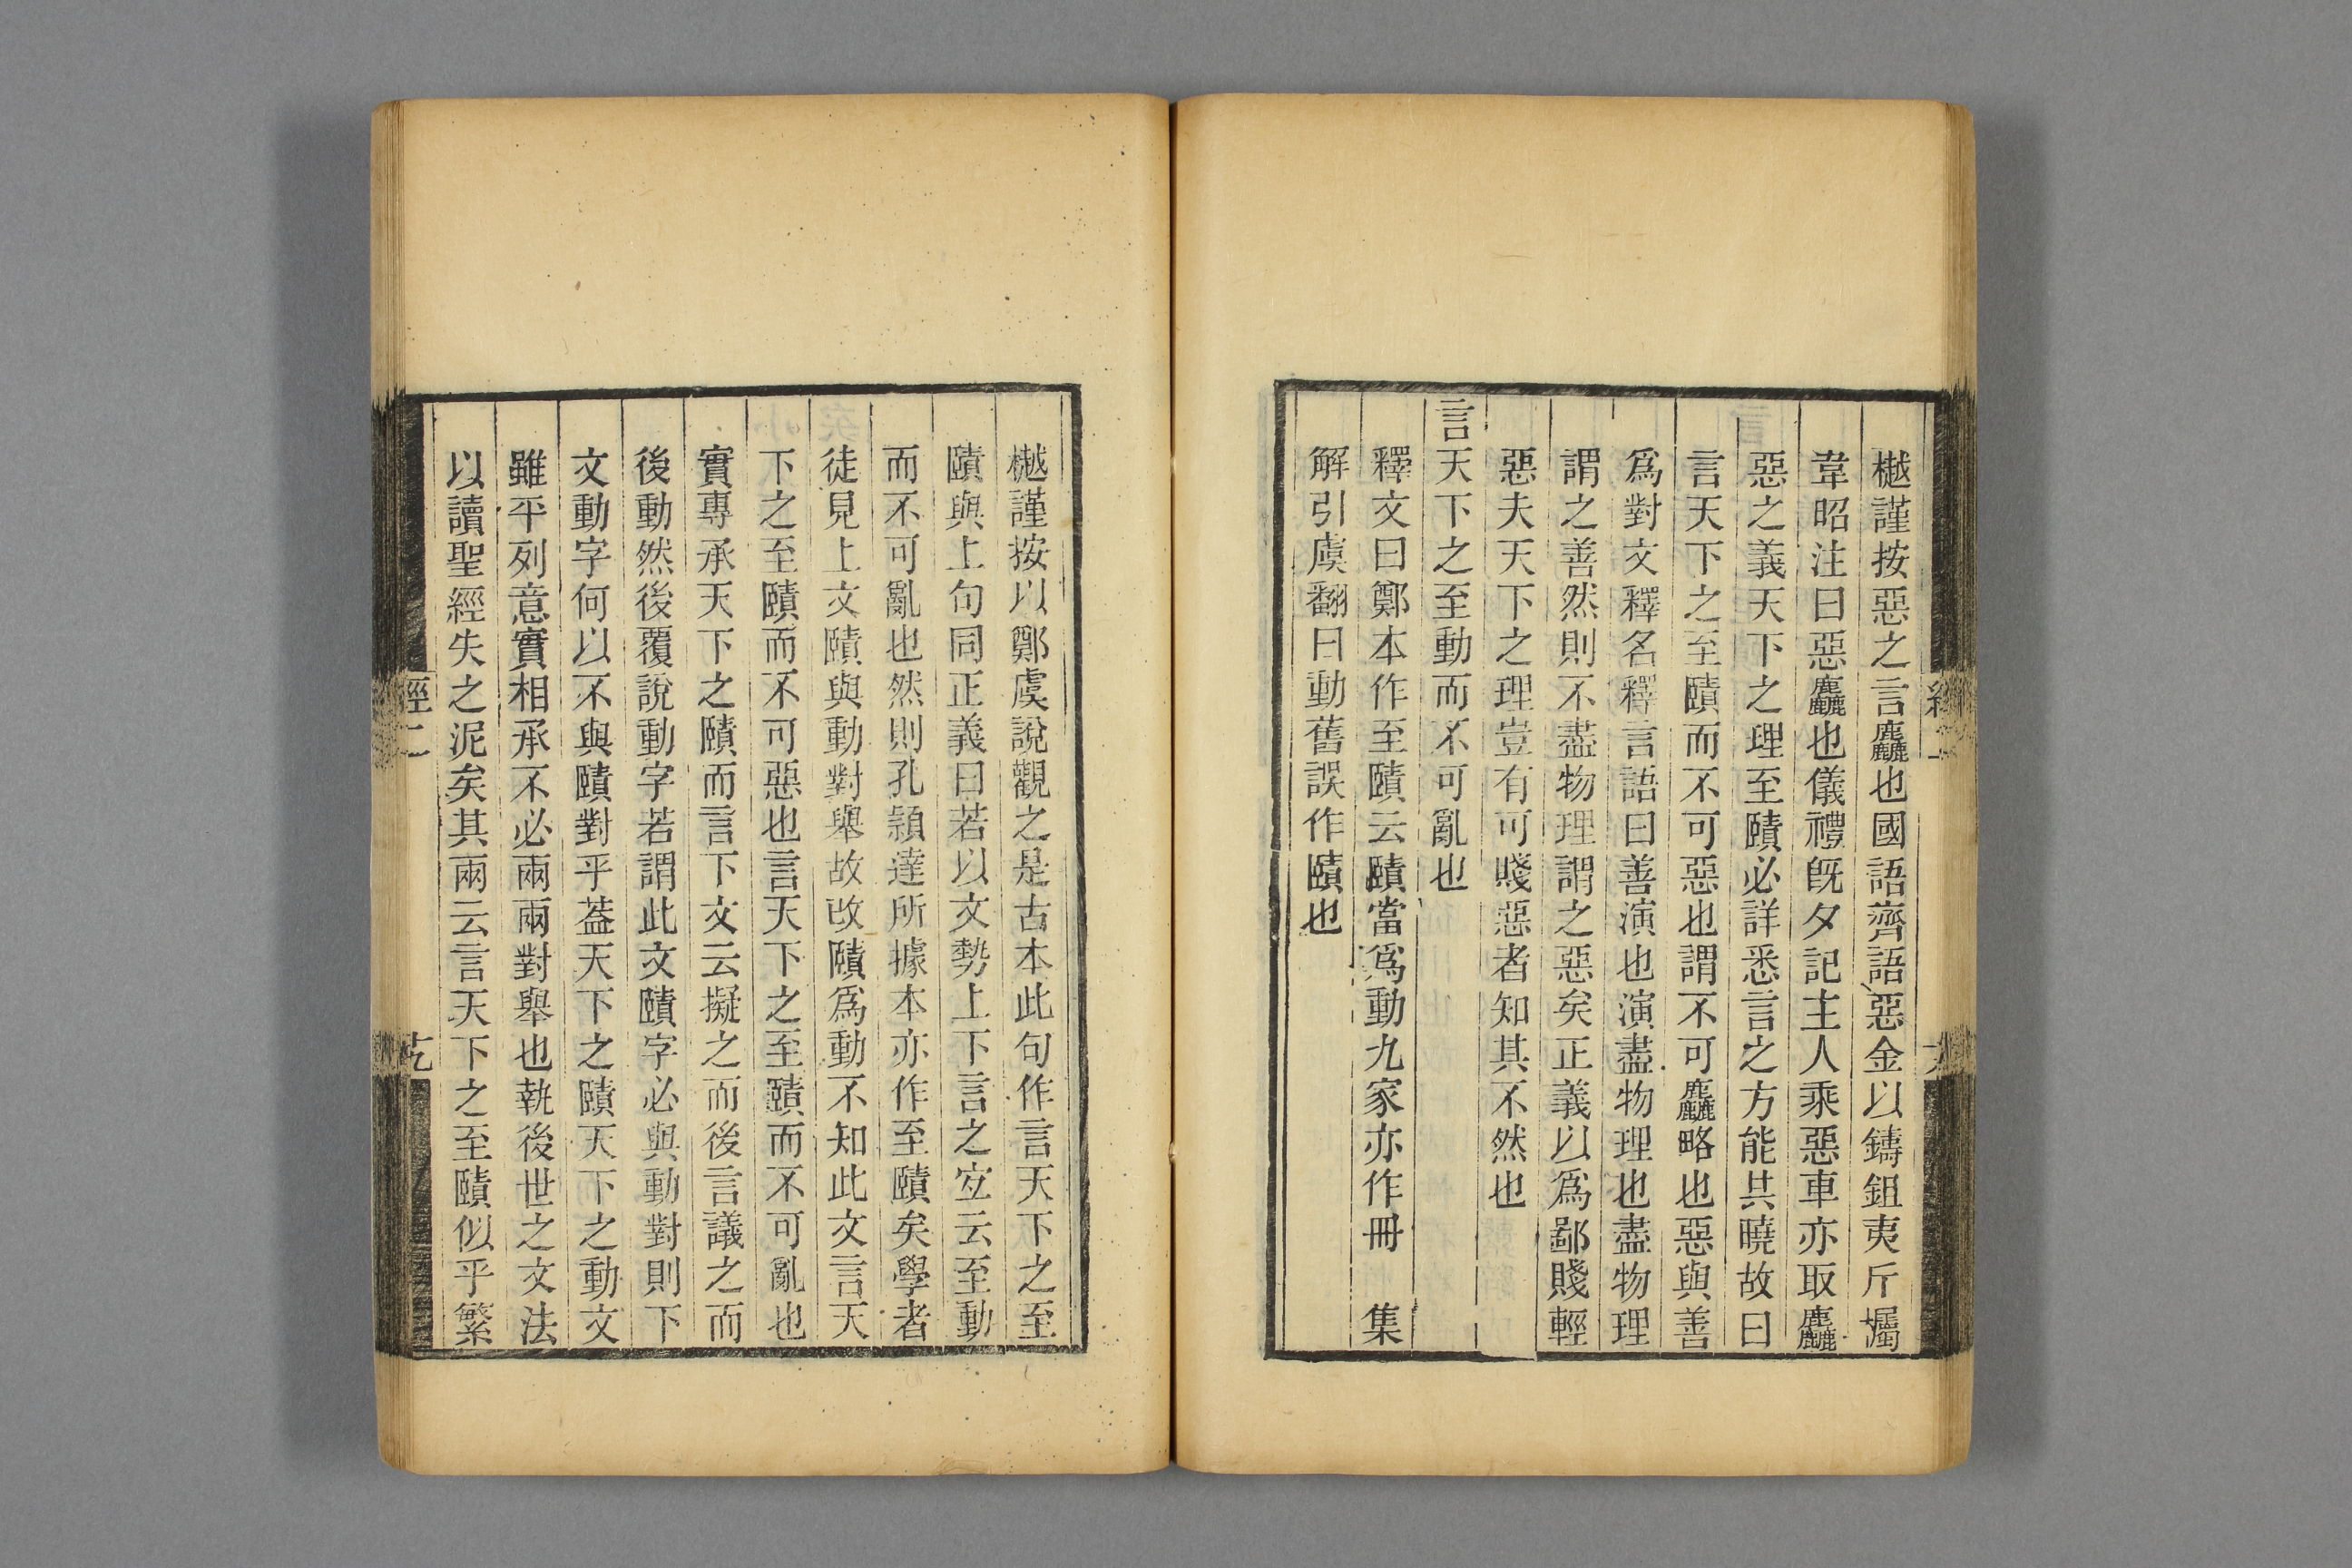 樾謹按惡之言麤也國語齊語惡金以鑄鉏夷斤欘
韋昭注曰惡麤也儀禮旣夕記主人乘惡車亦取麤
惡之義天下之理至賾必詳悉言之方能共曉故曰
言天下之至賾而不可惡也謂不可麤略也惡與善
爲對文釋名釋言語曰善演也演盡物理也盡物理
謂之善然則不盡物理謂之惡矣正義以爲鄙賤輕
惡夫天下之理豈有可賤惡者知其不然也
言天下之至動而不可亂也
釋文曰鄭本作至賾云賾當爲動九家亦作冊 集
解引虞翻曰動舊誤作賾也
樾謹按以鄭虞說觀之是古本此句作言天下之至
賾與上句同正義曰若以文勢上下言之宐云至動
而不可亂也然則孔頴達所據本亦作至賾矣學者
徒見上文賾與動對舉故改賾爲動不知此文言天
下之至賾而不可惡也言天下之至賾而不可亂也
實專承天下之賾而言下文云擬之而後言議之而
後動然後覆說動字若謂此文賾字必與動對則下
文動字何以不與賾對乎葢天下之賾天下之動文
雖平列意實相承不必兩兩對舉也執後世之文法
以讀聖經失之泥矣其兩云言天下之至賾似乎繁
經二